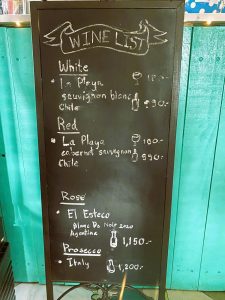 WINE LIST
White
• La Playa 180.-
sauvignon blanc
Chile 990.-
Red
• La Playa 180.-
cabernet sauvegnon
Chile 990.-
Rosé
• El Esteco
Blanc De Noir 2020
Argentina 1,150.-
Prosecco
• Italy 1,200.-